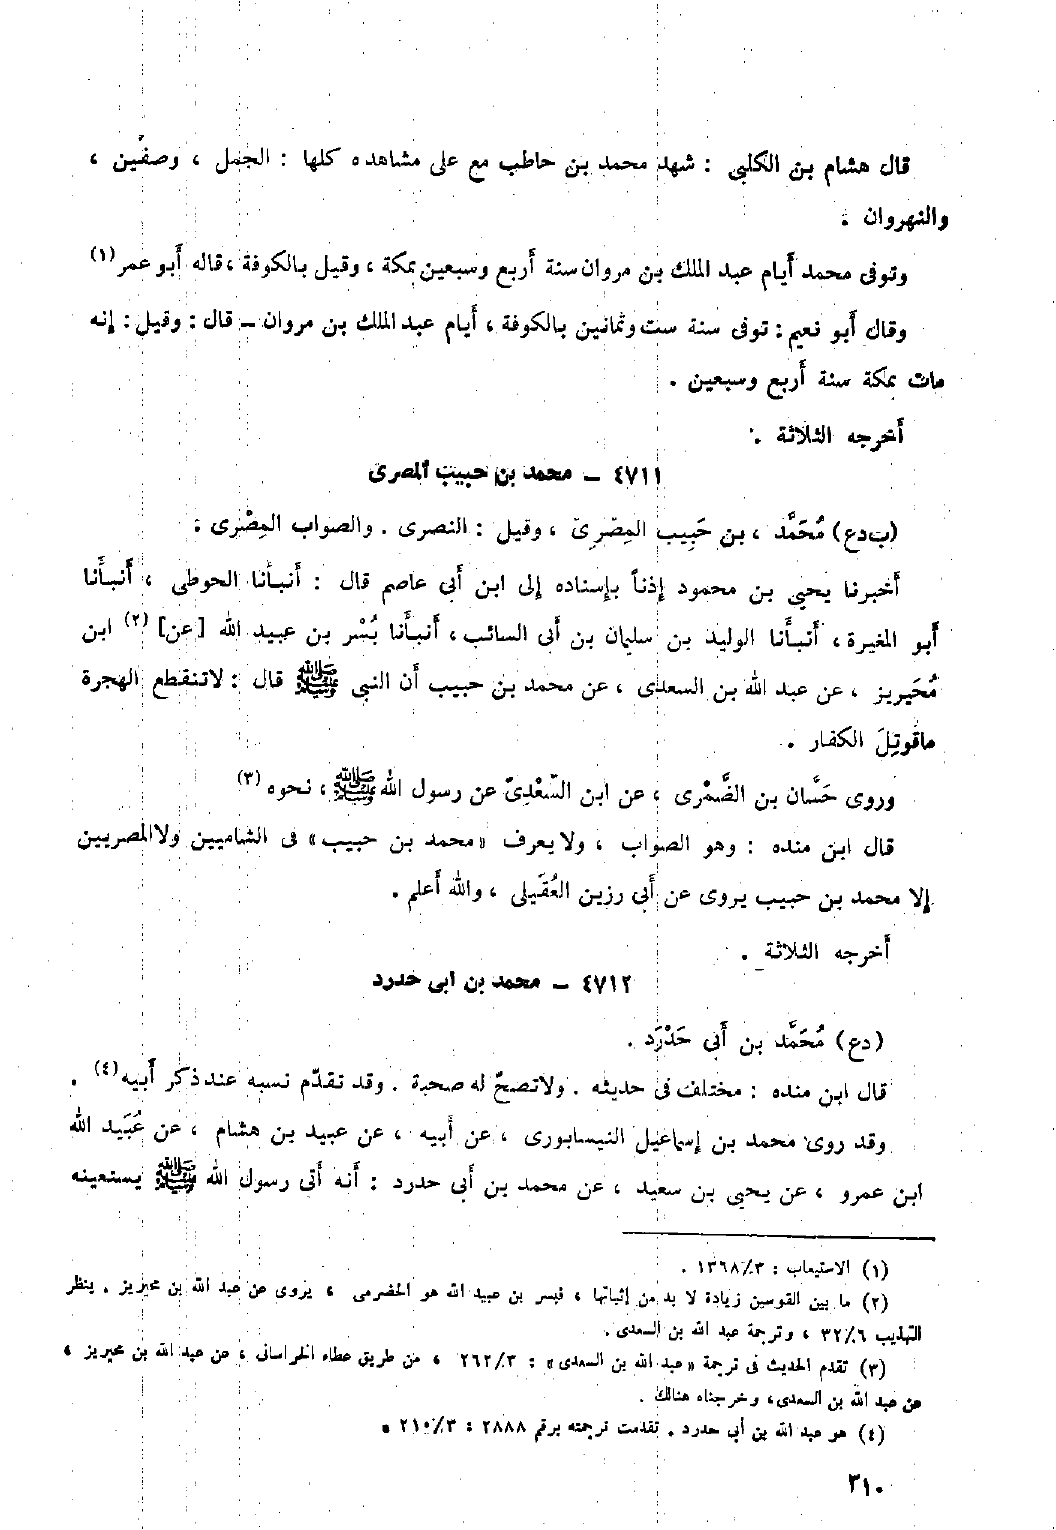 قال هشام بن الكلبى : شهد محمد بن حاطب مع على مشاهده كلها : الجمل ، وصفّين ،
والنهروان .
وتوفى محمد أيام عبد الملك بن مروان سنة أربع وسبعين بمكة ، وقيل بالكوفة ، قاله أبو عمر (١)
وقال أبو نعيم : توفى سنة ست وثمانين بالكوفة ، أيام عبد الملك بن مروان – قال : وقيل : إنه
مات بمكة سنة أربع وسبعين .
أخرجه الثلاثة .
٤٧١١ – محمد بن حبيب المصرى
(ب دع) مُحَمَّد ، بن حَبِيب المِصْرِىّ ، وقيل : النصرى . والصواب المِصْرى .
أخبرنا يحيى بن محمود إذناً بإسناده إلى ابن أبى عاصم قال : أنبأنا الحوطى ، أنبأنا
أبو المغيرة ، أنبأنا الوليد بن سليمان بن أبى السائب ، أنبأنا بُسْر بن عبيد الله [عن] (٢) ابن
مُحَيريز ، عن عبد الله بن السعدى ، عن محمد بن حبيب أن النبى ﷺ قال : لا تنقطع الهجرة
ما قُوتِلَ الكفار .
وروى حَسَّان بن الضَّمْرى ، عن ابن السَّعْدِىّ عن رسول الله ﷺ ، نحوه (٣)
قال ابن منده : وهو الصواب ، ولا يعرف «محمد بن حبيب» فى الشاميين ولا المصريين
إلا محمد بن حبيب يروى عن أبى رزين العُقَيلى ، والله أعلم .
أخرجه الثلاثة .
٤٧١٢ – محمد بن ابى حدرد
(دع) مُحَمَّد بن أَبى حَدْرَد .
قال ابن منده : مختلف فى حديثه . ولا تصحّ له صحبة . وقد تقدّم نسبه عند ذكر أبيه (٤) .
وقد روى محمد بن إسماعيل النيسابورى ، عن أبيه ، عن عبيد بن هشام ، عن عُبَيد الله
ابن عمرو ، عن يحيى بن سعيد ، عن محمد بن أبى حدرد : أنه أتى رسول الله ﷺ يستعينه
(١) الاستيعاب : ١٣٦٨/٣ .
(٢) ما بين القوسين زيادة لا بد من إثباتها ، فبسر بن عبيد الله هو الحضرمى ، يروى عن عبد الله بن محيريز . ينظر
التهذيب ٣٢/٦ ، وترجمة عبد الله بن السعدى .
(٣) تقدم الحديث فى ترجمة «عبد الله بن السعدى» : ٢٦٢/٣ ، من طريق عطاء الخراسانى ، عن عبد الله بن محيريز ،
عن عبد الله بن السعدى ، وخرجناه هنالك .
(٤) هو عبد الله بن أبى حدرد . تقدمت ترجمته برقم ٢٨٨٨ : ٢١٠/٣ .
٣١٠